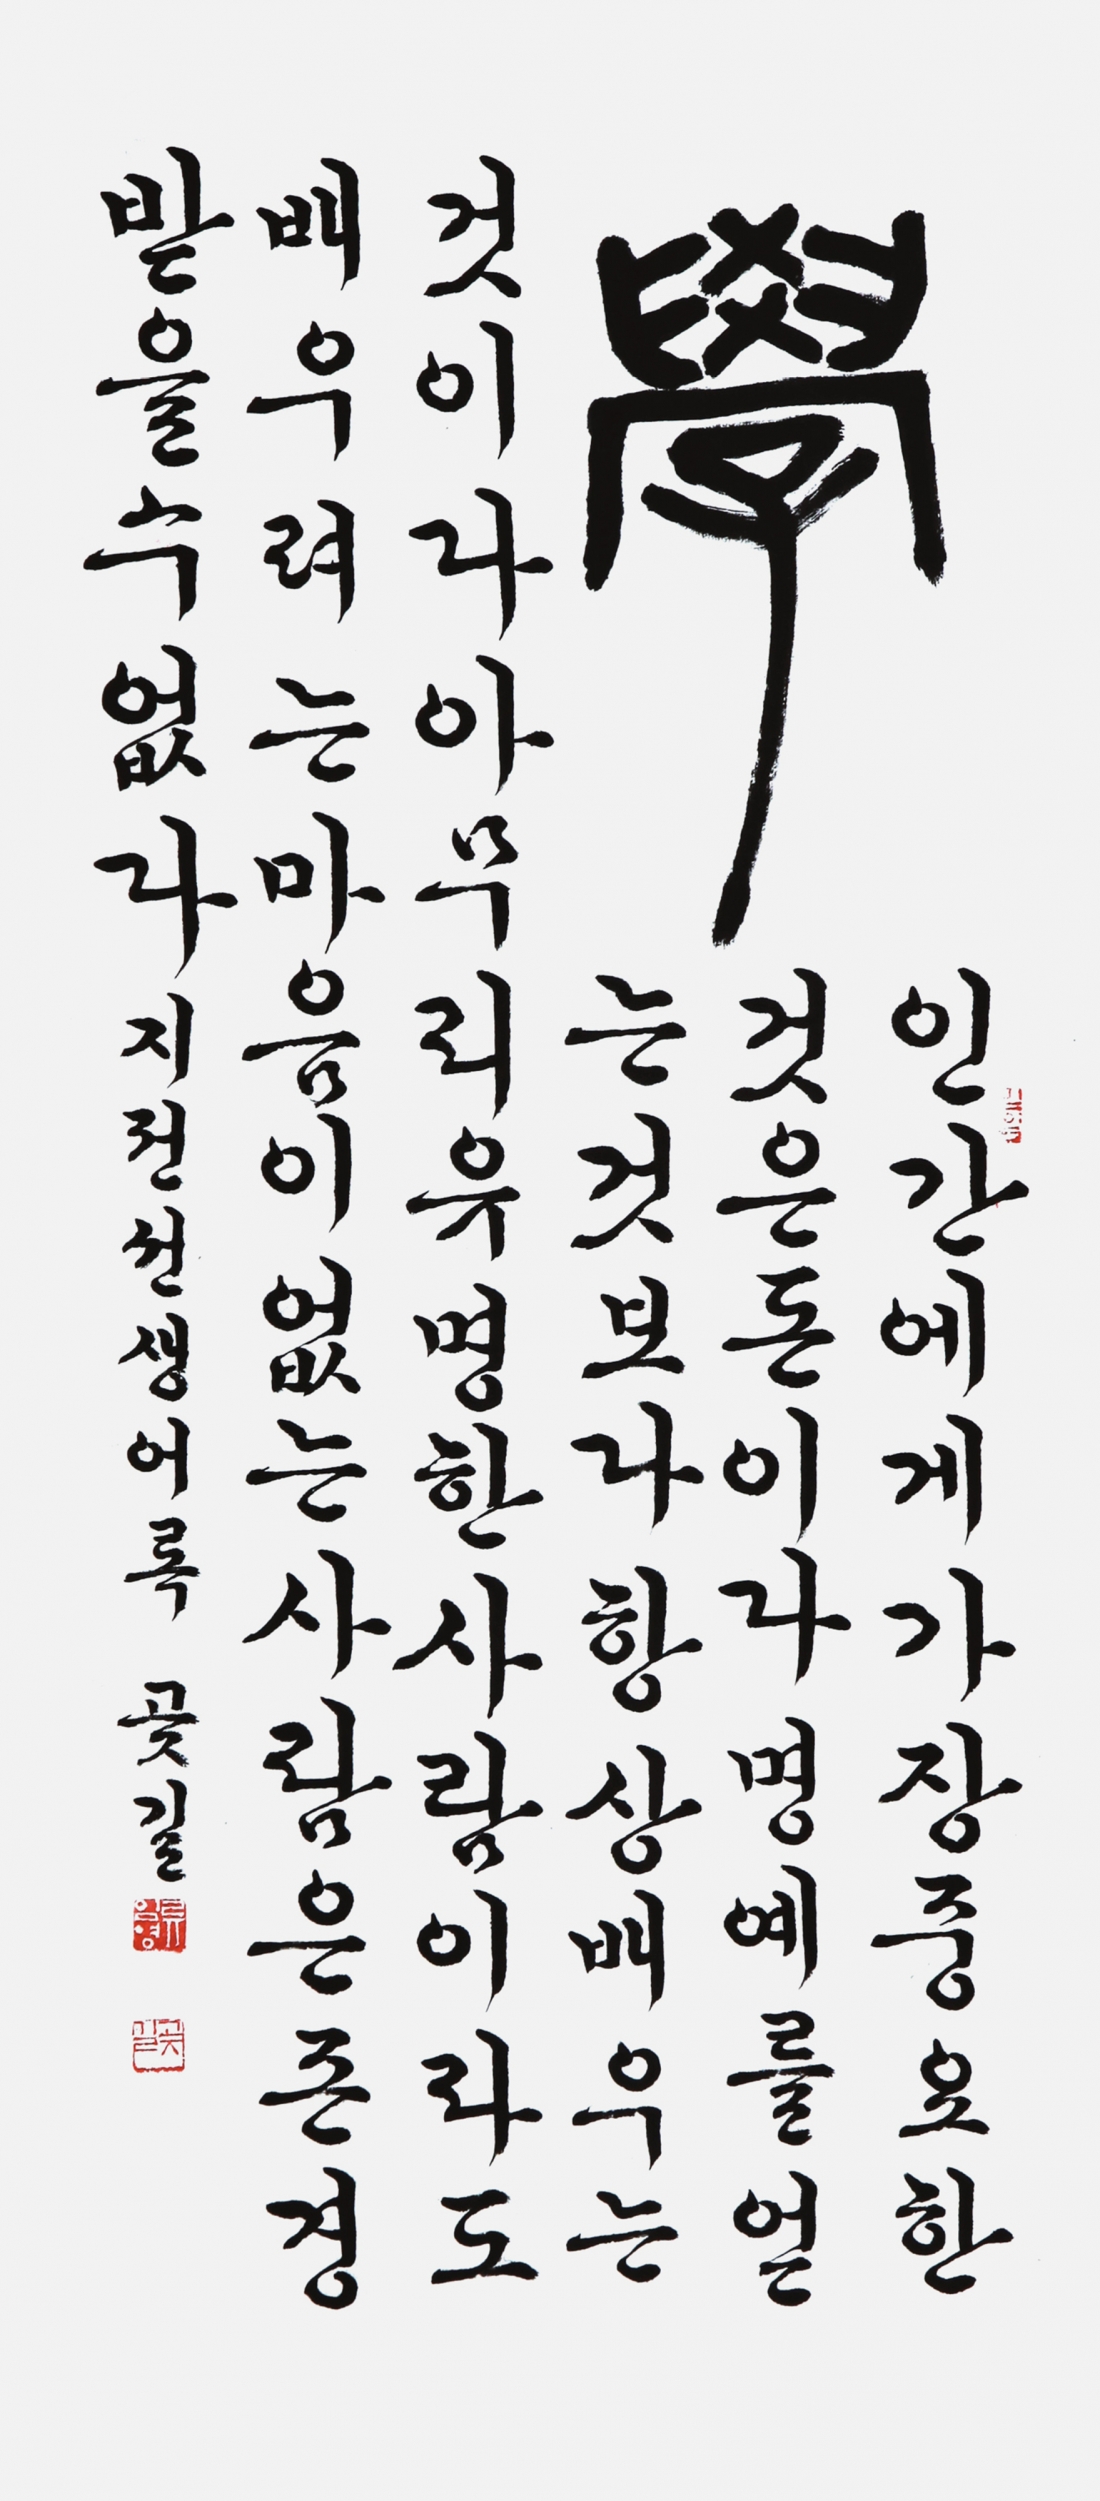 學
인간에게가장중요한
것은돈이나명예를얻
는것보다항상배우는
것이다아무리유명한사람이라도
배우려는마음이없는사람은존경
받을수없다 지전선생어록